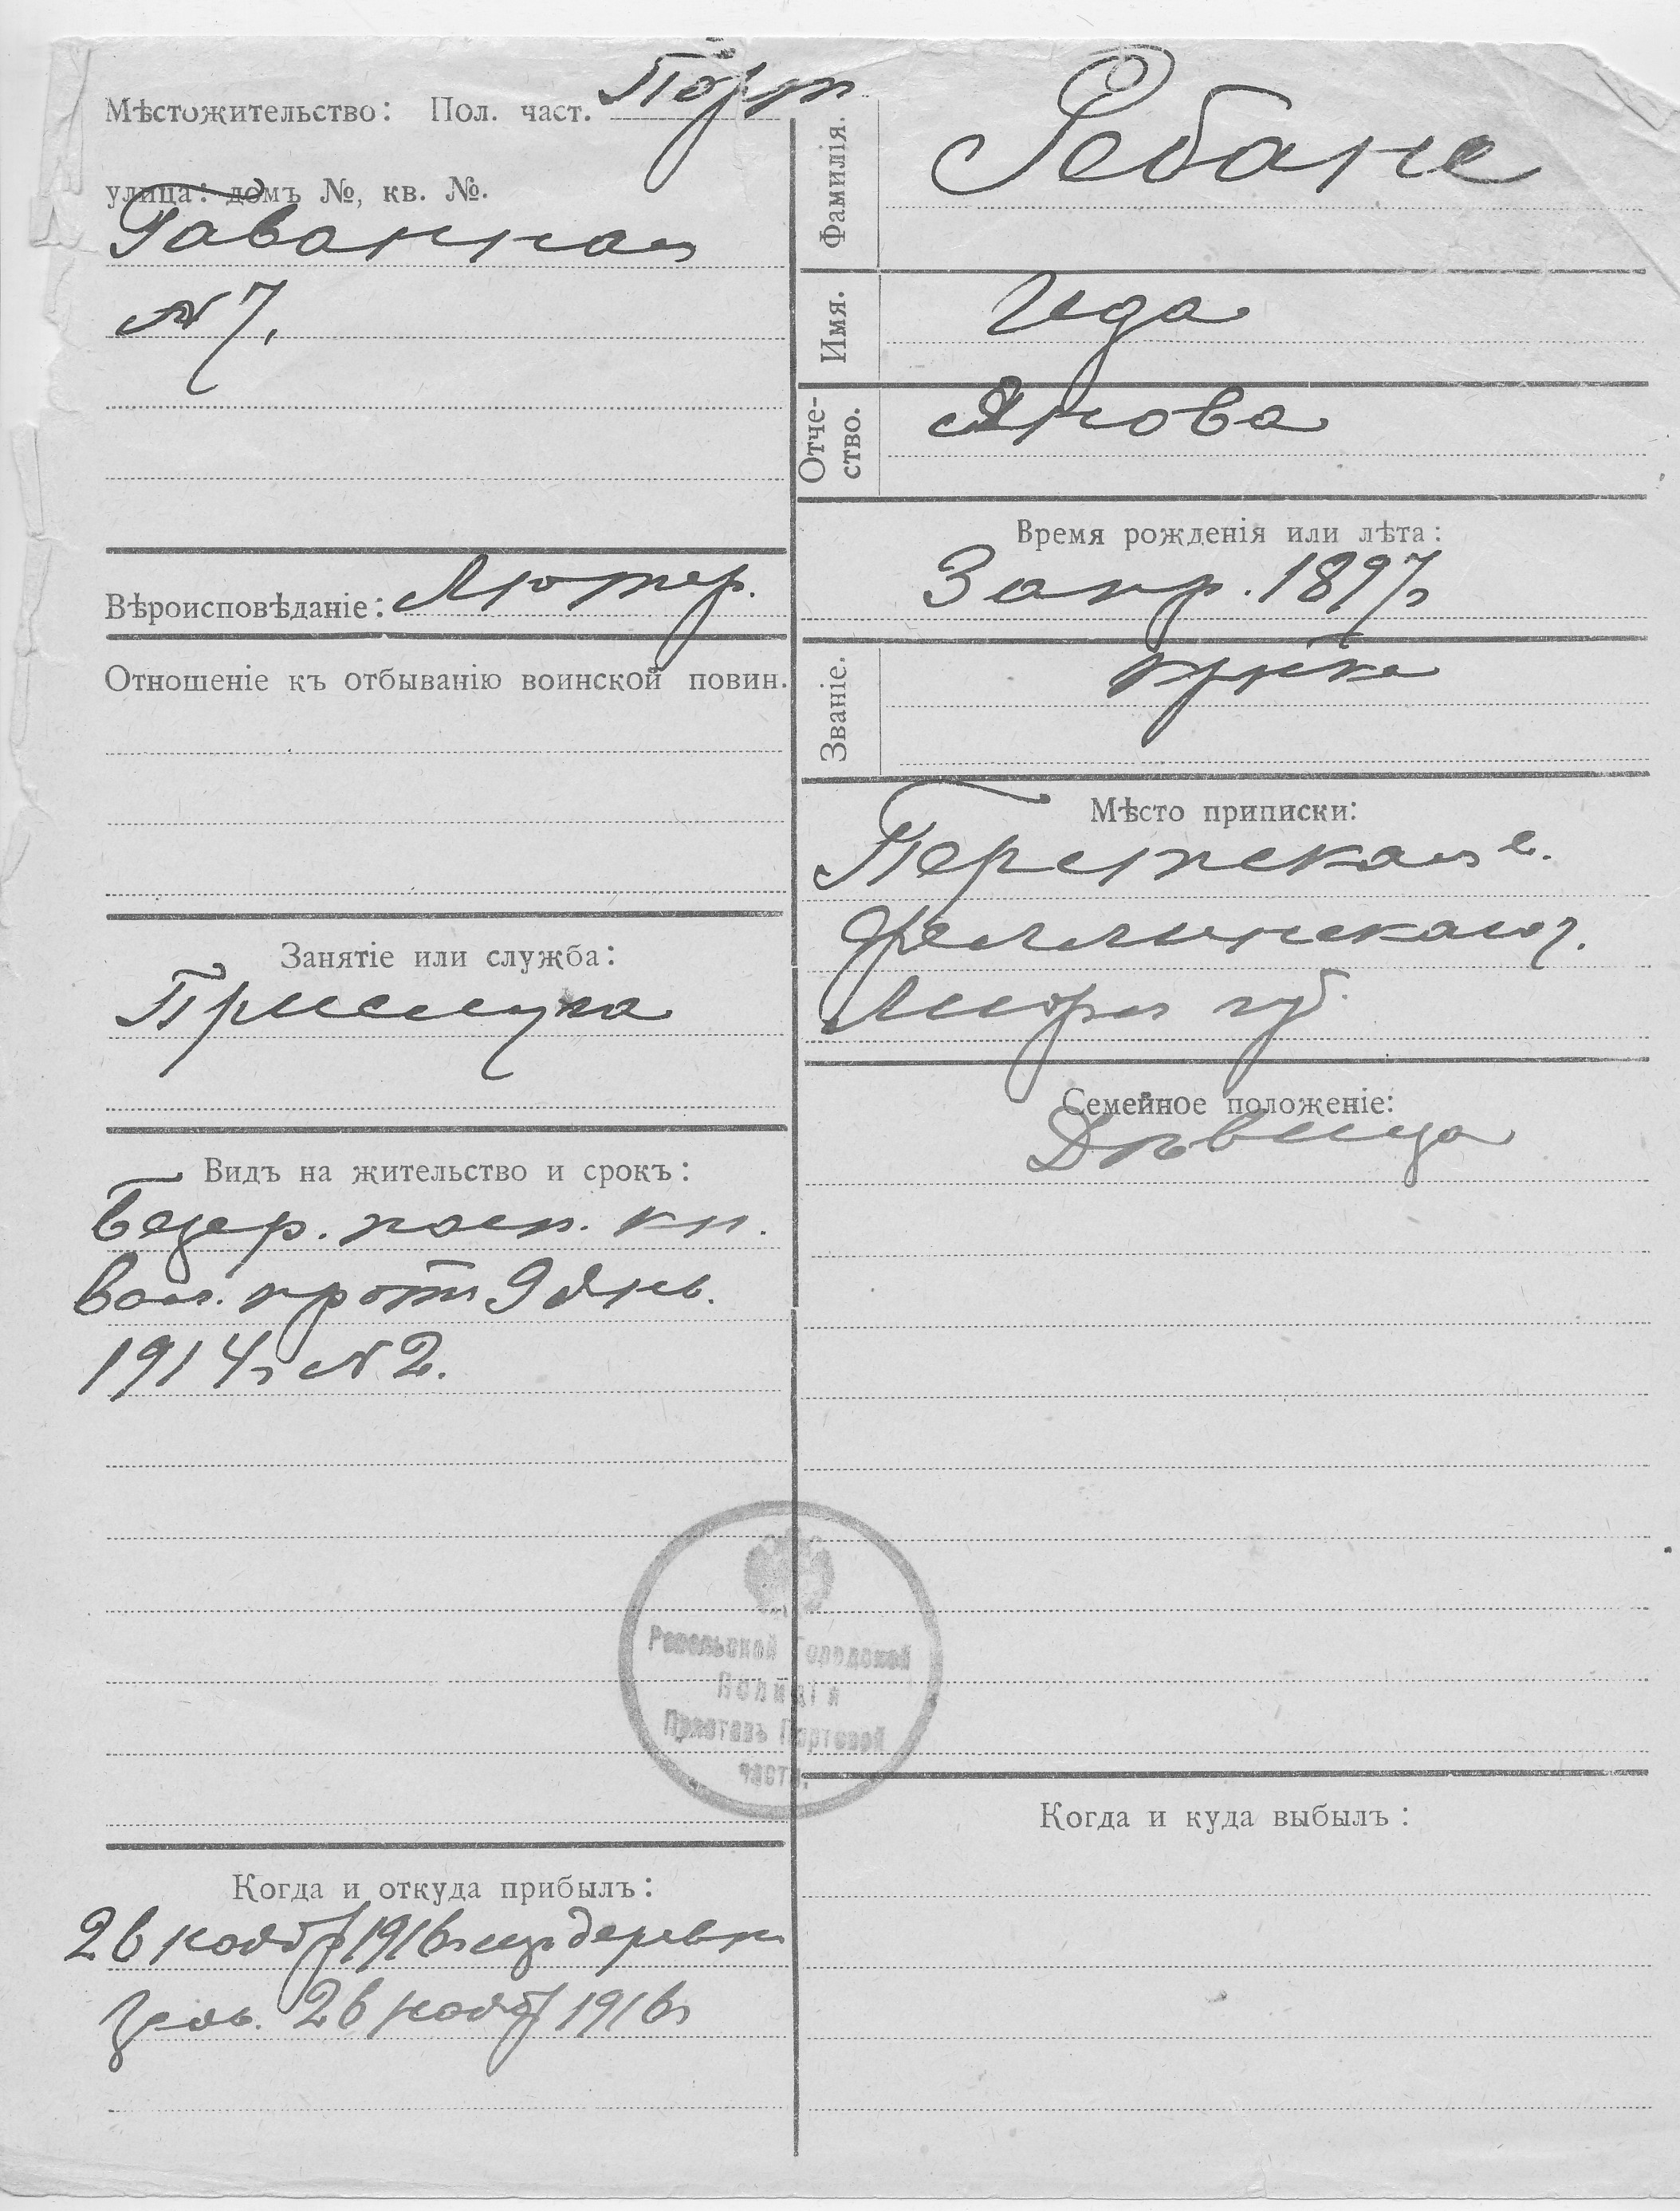 Мѣстожительство: Пол. част. Порт
улица: домъ №, кв. №.
Гаванная
№ 7.
Вѣроисповѣданіе: Лютер.
Отношеніе къ отбыванію воинской повин.
Занятіе или служба:
Прислуга
Видъ на жительство и срокъ:
Безср. пасп. кн.
9 Янв.
1914 г № 2.
Когда и откуда прибылъ:
26 нояб 1916 г изъ деревни
26 нояб 1916 г
Фамилія. Ребане
Имя. Ида
Отче-
ство. Янова
Время рожденія или лѣта:
3 апр. 1897 г
Званіе. кр-ка
Мѣсто приписки:
Перстская в.
Феллинскаго у.
Лифл губ.
Семейное положеніе:
Дѣвица
Когда и куда выбылъ:
Ревельской Городской
Полиціи
Приставъ Портовой
части.